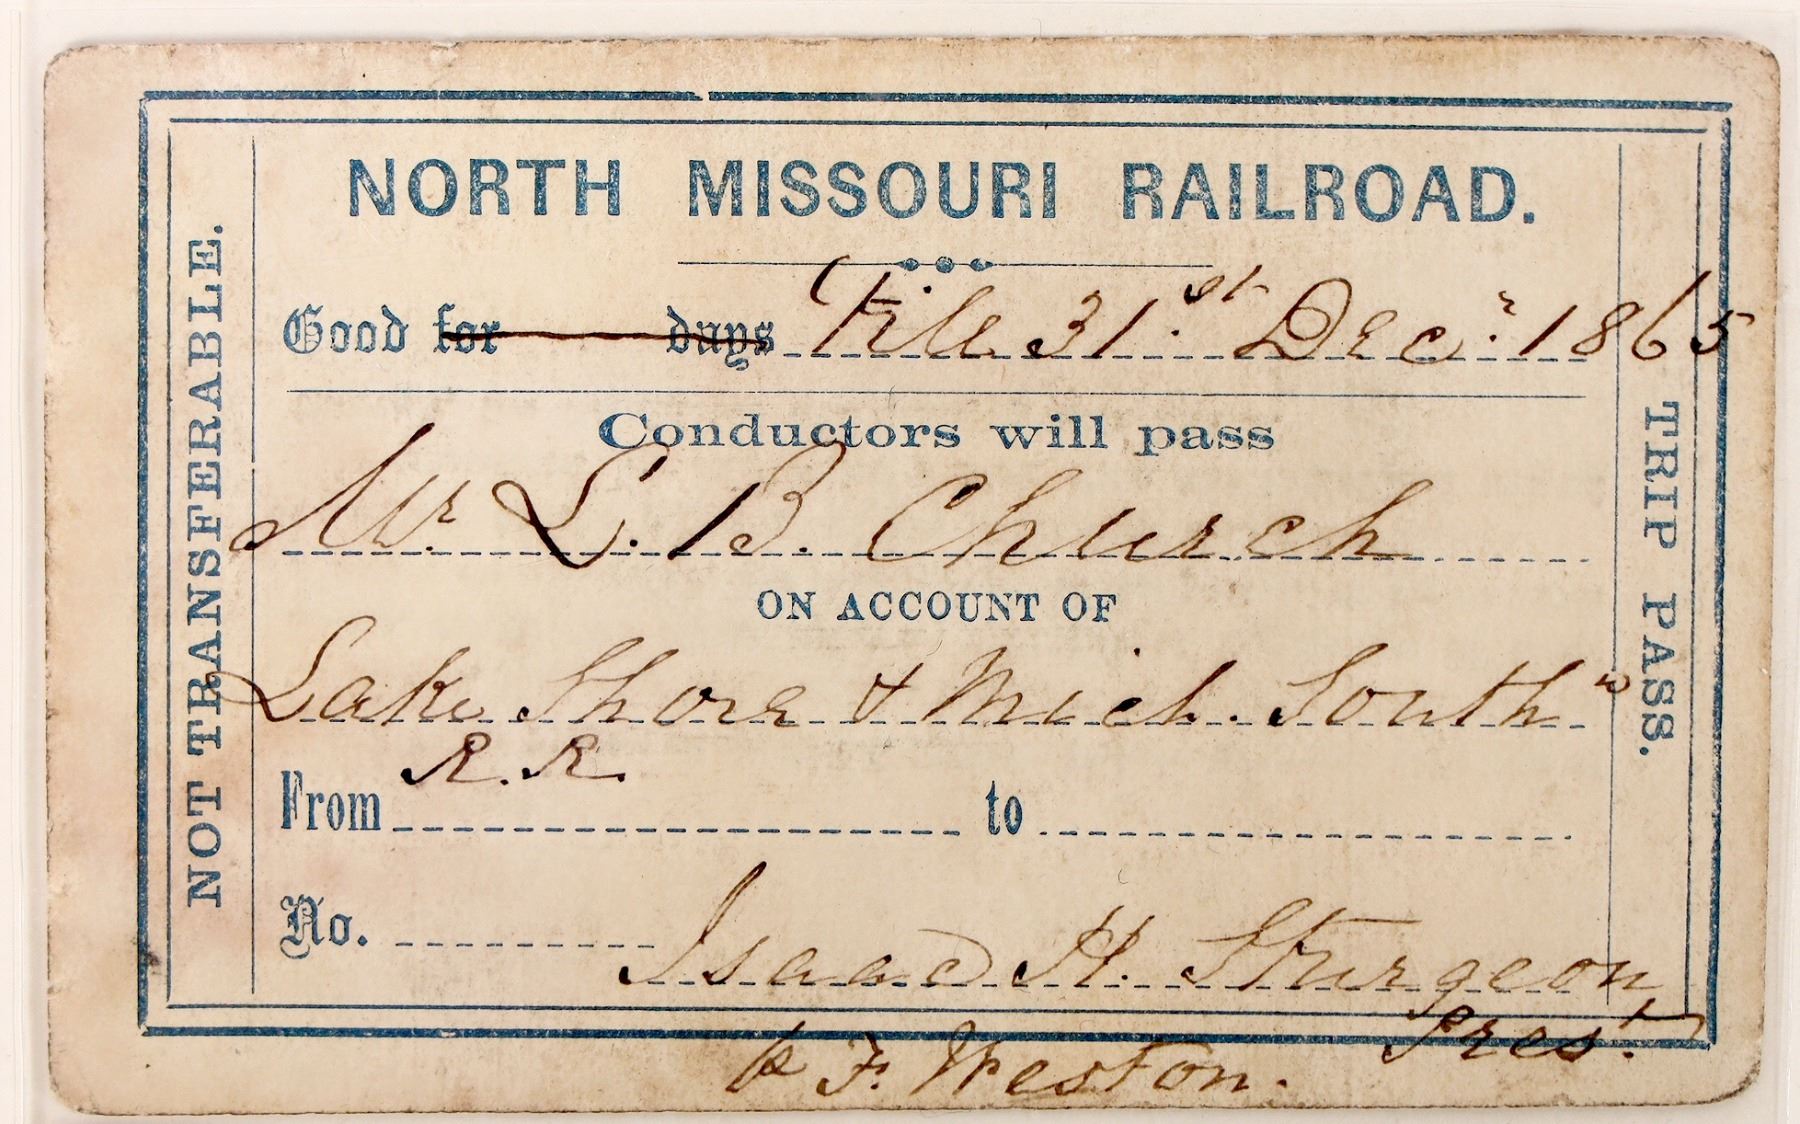 NORTH MISSOURI RAILROAD.
Good for days Till 31.st Decr. 1865
Conductors will pass
Mr. L. B. Church
ON ACCOUNT OF
Lake Shore & Mich. Southn
R. R.
From to
No.
Isaac H. Sturgeon
Prest.
F. Weston.
NOT TRANSFERABLE.
TRIP PASS.